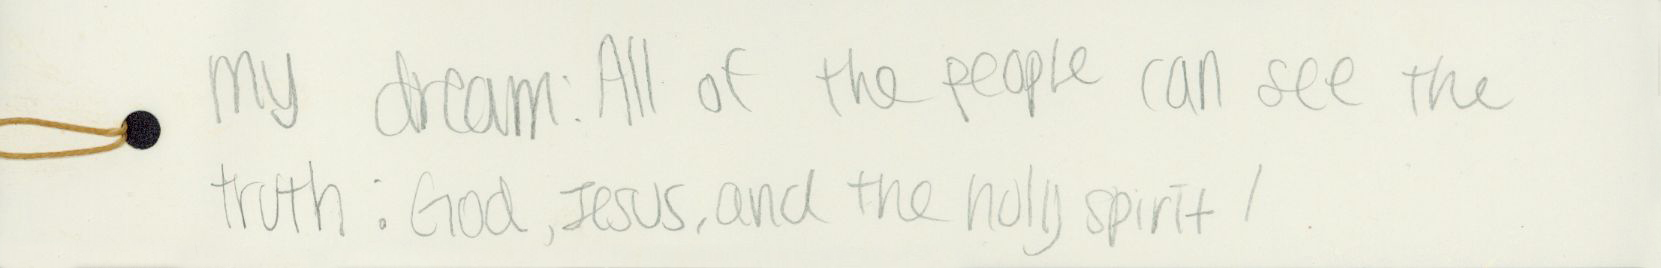 my dream: All of the people can see the
truth: God, Jesus, and the holy spirit!